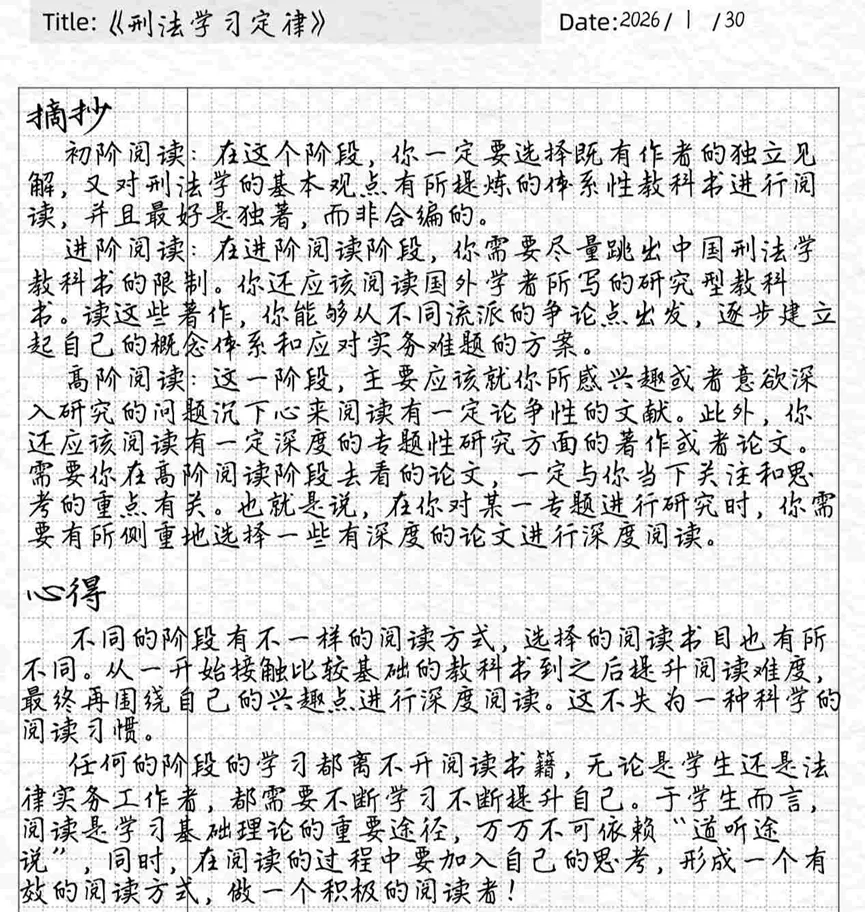 Title:《刑法学习定律》 Date:2026/ 1 /30
摘抄
初阶阅读：在这个阶段，你一定要选择既有作者的独立见
解，又对刑法学的基本观点有所提炼的体系性教科书进行阅
读，并且最好是独著，而非合编的。
进阶阅读：在进阶阅读阶段，你需要尽量跳出中国刑法学
教科书的限制。你还应该阅读国外学者所写的研究型教科
书。读这些著作，你能够从不同流派的争论点出发，逐步建立
起自己的概念体系和应对实务难题的方案。
高阶阅读：这一阶段，主要应该就你所感兴趣或者意欲深
入研究的问题沉下心来阅读有一定论争性的文献。此外，你
还应该阅读有一定深度的专题性研究方面的著作或者论文。
需要你在高阶阅读阶段去看的论文，一定与你当下关注和思
考的重点有关。也就是说，在你对某一专题进行研究时，你需
要有所侧重地选择一些有深度的论文进行深度阅读。
心得
不同的阶段有不一样的阅读方式，选择的阅读书目也有所
不同。从一开始接触比较基础的教科书到之后提升阅读难度，
最终再围绕自己的兴趣点进行深度阅读。这不失为一种科学的
阅读习惯。
任何的阶段的学习都离不开阅读书籍，无论是学生还是法
律实务工作者，都需要不断学习不断提升自己。于学生而言，
阅读是学习基础理论的重要途径，万万不可依赖“道听途
说”，同时，在阅读的过程中要加入自己的思考，形成一个有
效的阅读方式，做一个积极的阅读者！